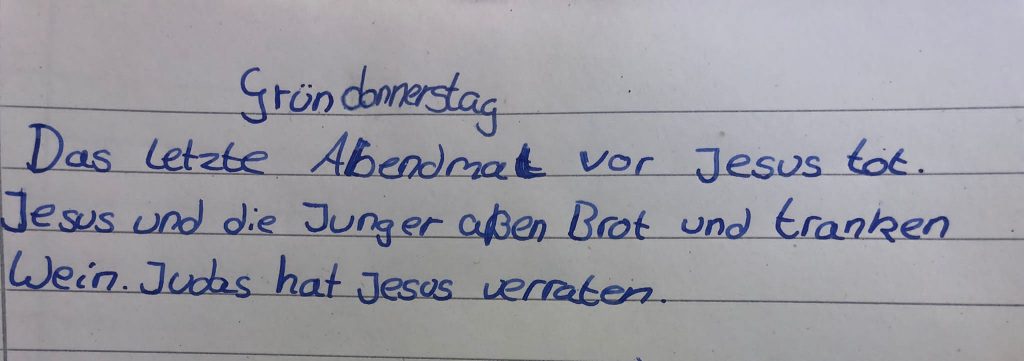 Gründonnerstag
Das letzte Abendmalt vor Jesus tot.
Jesus und die Junger aßen Brot und tranken
Wein. Judas hat Jesus verraten.